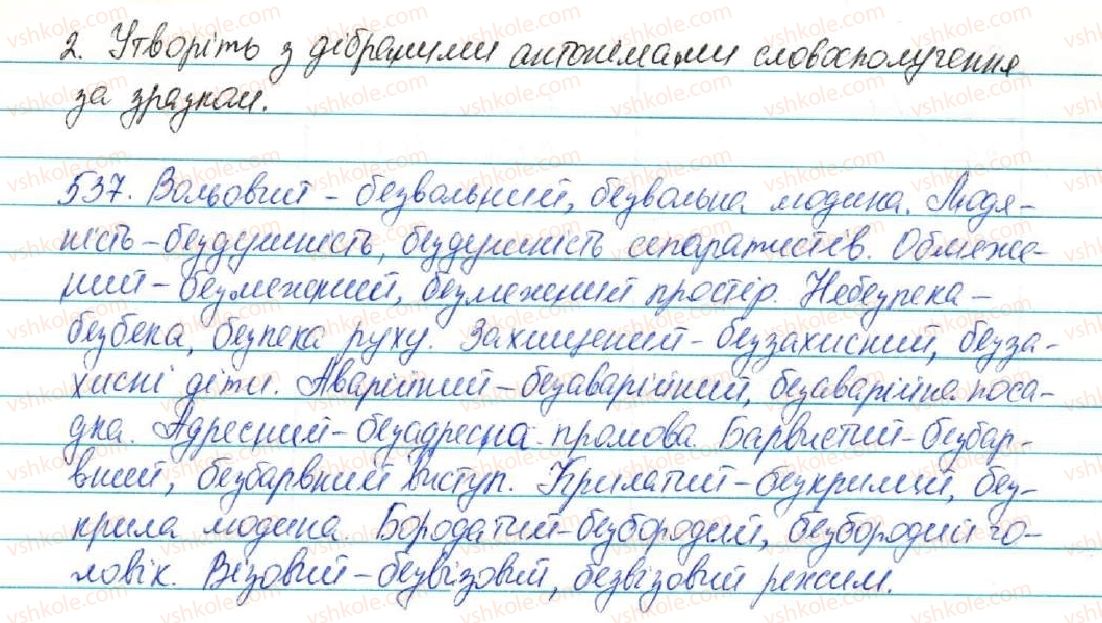 2. Утворіть з дібраними антонімами словосполучення
за зразком.
537. Вольовий – безвольний, безвольна людина. Людя-
ність – бездушність, бездушність сепаратистів. Обмеже-
ний – безмежний, безмежний простір. Небезпека –
безбека, безпека руху. Захищений – беззахисний, безза-
хисні діти. Аварійний – безаварійний, безаварійна поса-
дка. Адресний – безадресна промова. Барвистий – безбар-
вний, безбарвний виступ. Крилатий – безкрилий, без-
крила людина. Бородатий – безбородий, безбородий чо-
ловік. Візовий – безвізовий, безвізовий режим.